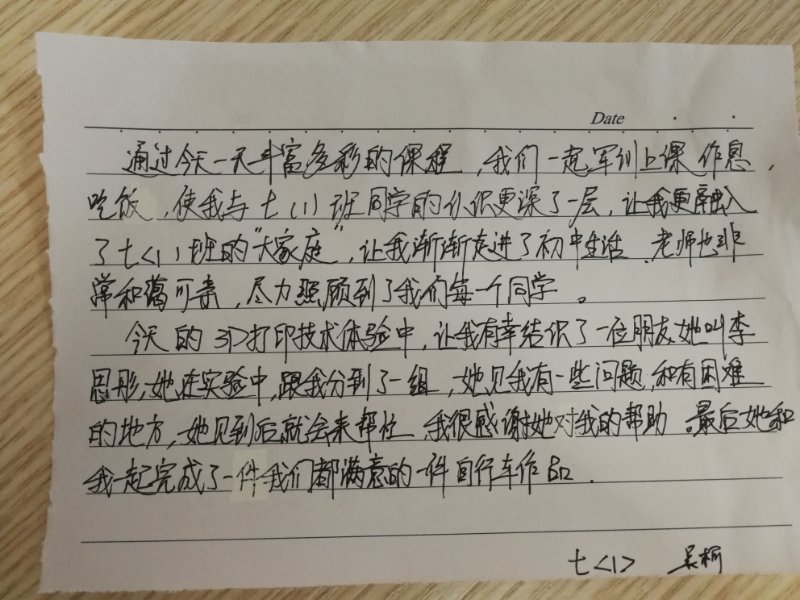 Date
通过今天一天丰富多彩的课程，我们一起军训上课作息，
吃饭，使我与七(1)班同学的认识更深了一层，让我更融入
了七<1>班的“大家庭”，让我渐渐走进了初中生活．老师也非
常和蔼可亲，尽力照顾到了我们每一个同学。
今天的3D打印技术体验中，让我有幸结识了一位朋友她叫李
思彤，她在实验中，跟我分到了一组，她见我有一些问题，和有困难
的地方，她见到后就会来帮忙．我很感谢她对我的帮助．最后她和
我一起完成了一件我们都满意的一件自行车作品．
七<1> 吴